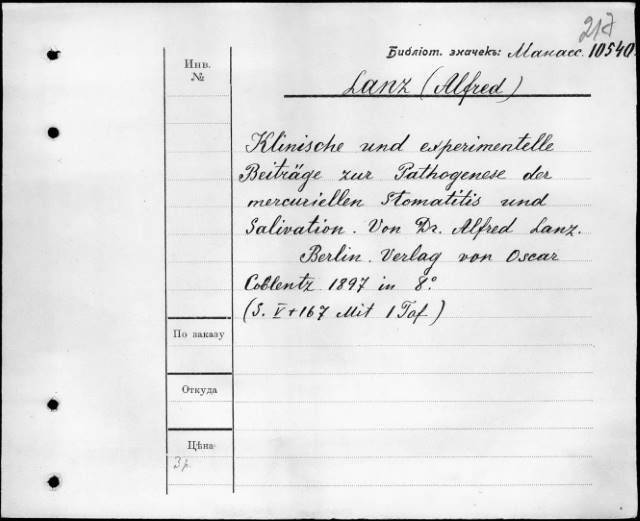 217
Библіот. значекъ: Манасс. 10540.
Инв.
№
Lanz (Alfred)
Klinische und experimentelle
Beiträge zur Pathogenese der
mercuriellen Stomatitis und
Salivation. Von Dr. Alfred Lanz.
Berlin. Verlag von Oscar
Coblentz 1897 in 8°.
(S. V+167 Mit 1 Taf.)
По заказу
Откуда
Цѣна
3 р.